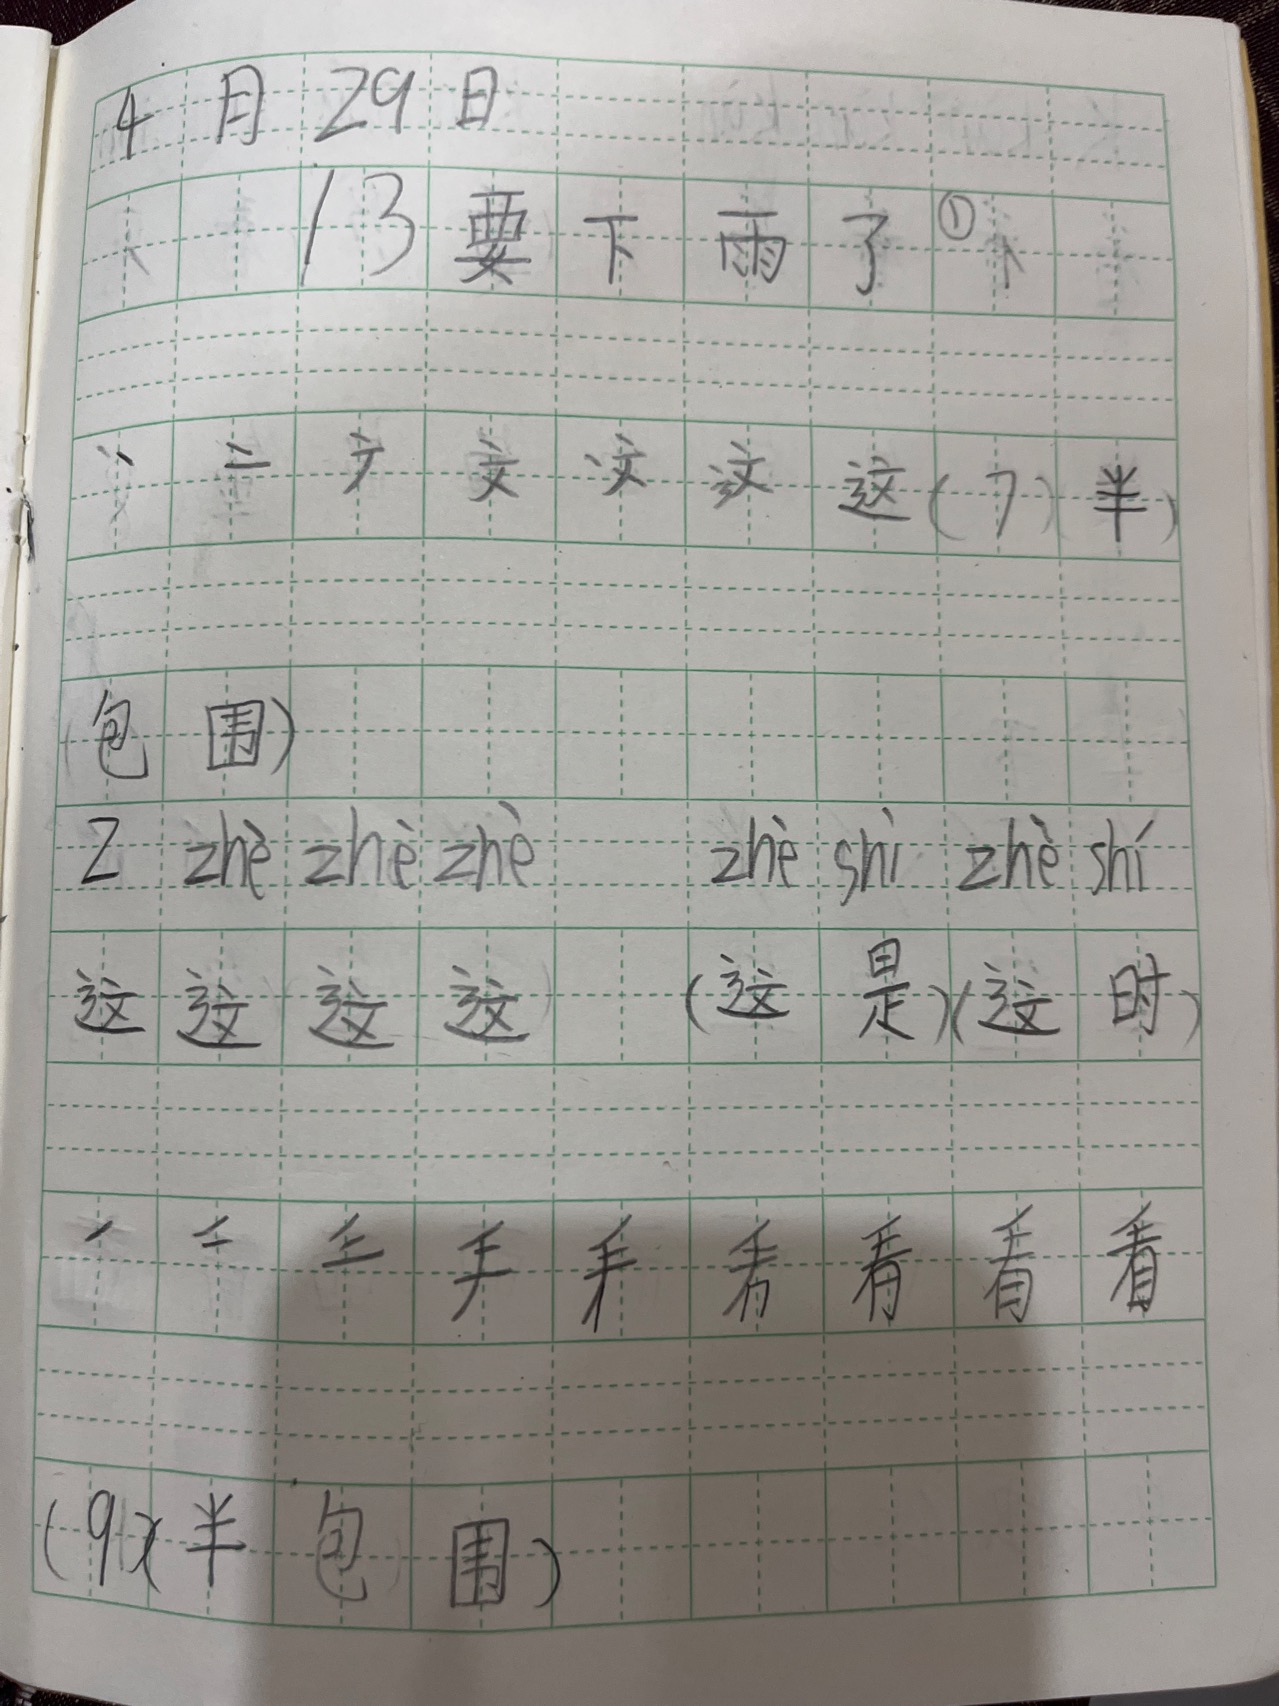 4月29日
13要下雨了①
丶 亠 ナ 文 文 这 这(7)(半
包围)
2 zhè zhè zhè zhè shì zhè shí
这 这 这 这 (这是)(这时)
看 看 看
(9)(半包围)